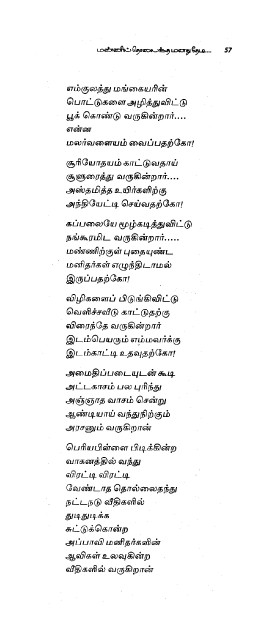 மண்ணில் தொலைந்த மனது தேடி... 57
எம்குலத்து மங்கையரின்
பொட்டுகளை அழித்துவிட்டு
பூக் கொண்டு வருகின்றார்....
என்ன
மலர்வளையம் வைப்பதற்கோ!
சூரியோதயம் காட்டுவதாய்
சூளுரைத்து வருகின்றார்....
அஸ்தமித்த உயிர்களிற்கு
அந்தியேட்டி செய்வதற்கோ!
கப்பலையே மூழ்கடித்துவிட்டு
நங்கூரமிட வருகின்றார்.....
மண்ணிற்குள் புதையுண்ட
மனிதர்கள் எழுந்திடாமல்
இருப்பதற்கோ!
விழிகளைப் பிடுங்கிவிட்டு
வெளிச்சவீடு காட்டுதற்கு
விரைந்தே வருகின்றார்
இடம்பெயரும் எம்மவர்க்கு
இடம்காட்டி உதவுதற்கோ!
அமைதிப்படையுடன் கூடி
அட்டகாசம் பல புரிந்து
அஞ்ஞாத வாசம் சென்று
ஆண்டியாய் வந்துநிற்கும்
அரசனும் வருகிறான்
பெரியபிள்ளை பிடிக்கின்ற
வாகனத்தில் வந்து
விரட்டி விரட்டி
வேண்டாத தொல்லைதந்து
நட்டநடு வீதிகளில்
துடிதுடிக்க
சுட்டுக்கொன்ற
அப்பாவி மனிதர்களின்
ஆவிகள் உலவுகின்ற
வீதிகளில் வருகிறான்